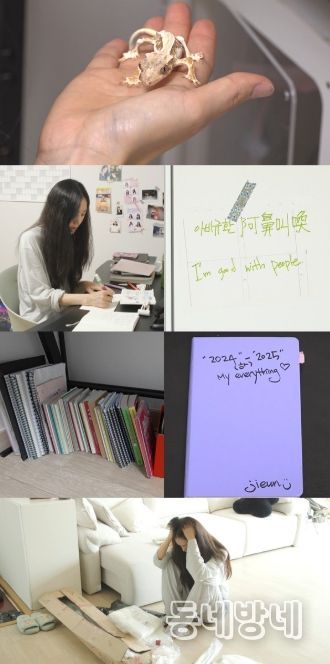 아비규환 阿鼻叫喚
I'm good with people
"2024" - "2025"
My everything ♡
jieun
동네방네